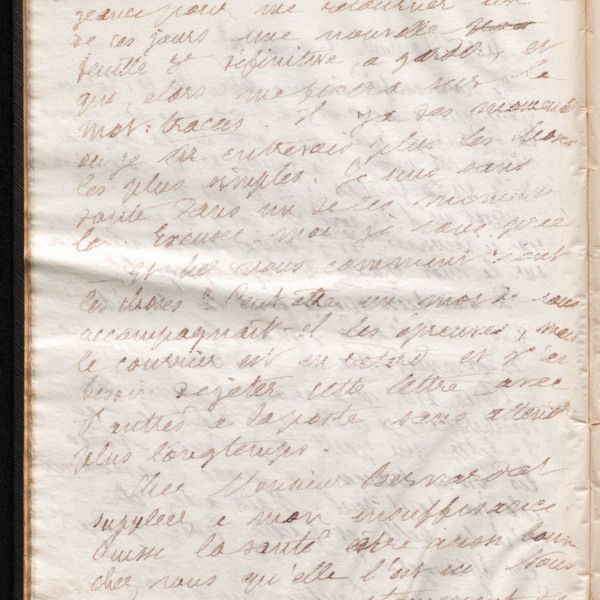 pour me retourner un
de ces jours une nouvelle
feuille définitive, à garder, et
qui alors me fixera sur le
mot: tracas. Il y a des moments
où je n'entrevois plus les choses
les plus simples. Je suis sans
doute dans un de ces moments
là. Excusez-moi, je vous prie
Et chez vous comment vont
les choses? Peut être un mot de vous
accompagnait-il les épreuves, mais
le courrier est en retard et j'ai
besoin de jeter cette lettre avec
d'autres à la poste, sans attendre
plus longtemps.
Cher Monsieur Bernardot
suppléez à mon insuffisance.
Puisse la santé être aussi bonne
chez vous qu'elle l'est ici. Nous